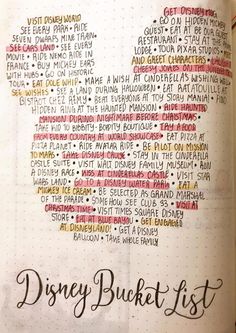 VISIT DISNEY WORLD
SEE EVERY PARK • RIDE
SEVEN DWARFS MINE TRAIN •
SEE CARS LAND • SEE EVERY
MOVIE • RIDE NEMO RIDE IN
FRANCE • BUY MICKEY EARS
WITH HUBS • GO ON HISTORIC
TOUR • EAT DOLE WHIP •
GET DISNEY
GO ON HIDDEN MICKEY
QUEST • EAT AT BE OUR GUEST
RESTAURANT • STAY AT THE
LODGE • TOUR PIXAR STUDIOS •
AND GREET CHARACTERS •
CHEESY JOKES ON THE
MAKE A WISH AT CINDERELLA'S WISHING WELL
SEE WISHES • SEE A LAND DURING HALLOWEEN • EAT RATATOUILLE AT
BISTROT CHEZ REMY • BEAT EVERYONE AT TOY STORY MANIA • FIND
HIDDEN RING AT THE HAUNTED MANSION • RIDE HAUNTED
MANSION DURING NIGHTMARE BEFORE CHRISTMAS •
TAKE KID TO BIBBITY-BOBBITY BOUTIQUE • TRY A FOOD
FROM EVERY COUNTRY AT WORLD SHOWCASE • EAT PIZZA AT
PIZZA PLANET • RIDE AVATAR RIDE • BE PILOT ON MISSION
TO MARS • TAKE DISNEY CRUISE • STAY IN THE CINDERELLA
CASTLE SUITE • VISIT WALT DISNEY FAMILY MUSEUM • RUN
A DISNEY RACE • KISS AT CINDERELLA'S CASTLE • VISIT STAR
WARS LAND • GO TO A DISNEY WATER PARK • EAT A
MICKEY ICE CREAM • BE SELECTED AS GRAND MARSHAL
OF THE PARADE • SOME HOW SEE CLUB 33 • VISIT AT
CHRISTMAS TIME • VISIT TIMES SQUARE DISNEY
STORE • EAT AT BLUE BAYOU • GET ENGAGED
AT DISNEYLAND! • GET A DISNEY
BALLOON • TAKE WHOLE FAMILY
Disney Bucket List